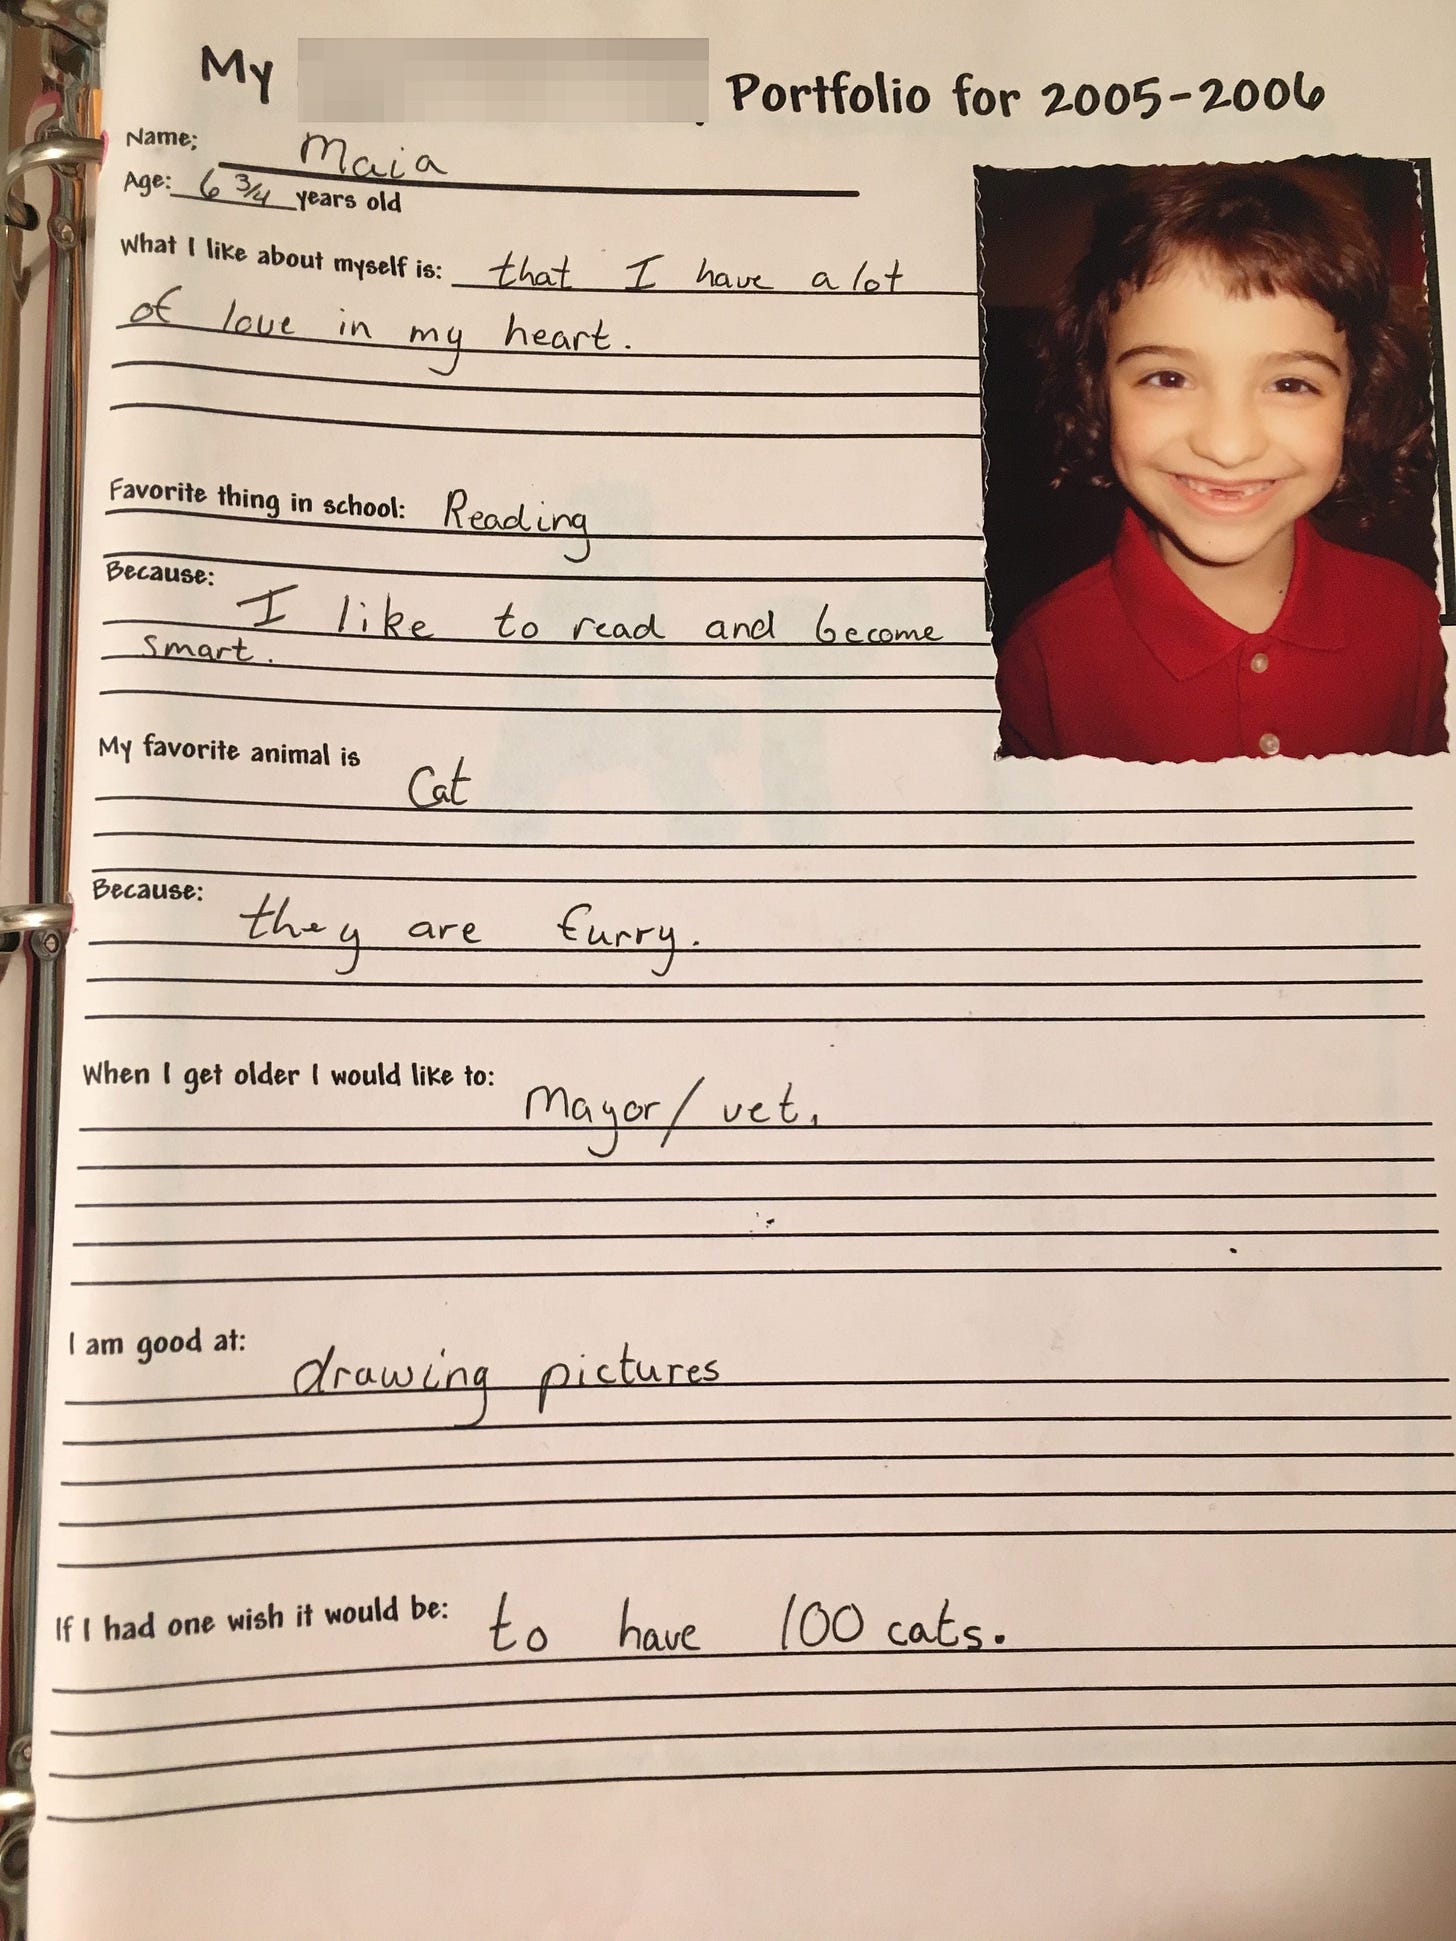 My Portfolio for 2005-2006
Name: Maia
Age: 6 3/4 years old
What I like about myself is: that I have a lot
of love in my heart.
Favorite thing in school: Reading
Because:
I like to read and become
smart.
My favorite animal is
Cat
Because:
they are furry.
When I get older I would like to:
Mayor/vet.
I am good at:
drawing pictures
If I had one wish it would be: to have 100 cats.